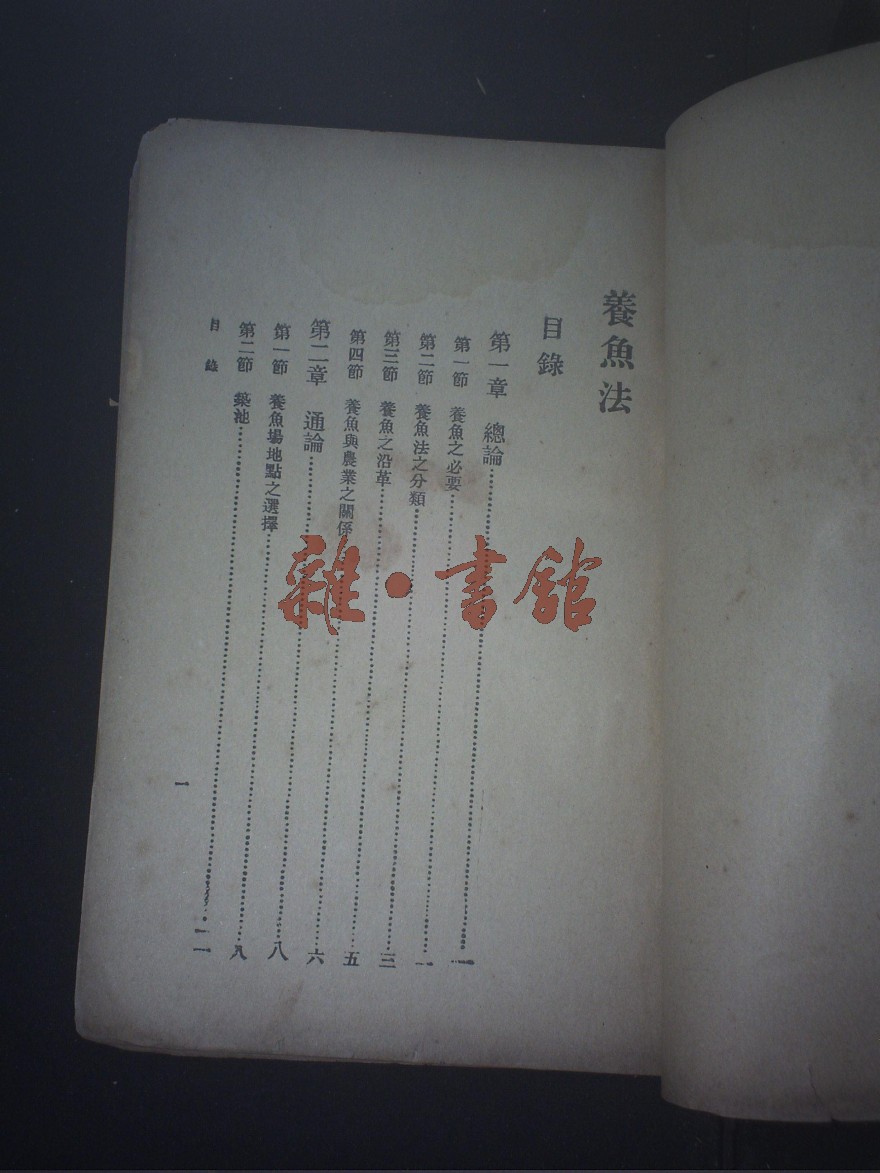 養魚法
目錄
第一章 總論……一
第一節 養魚之必要……一
第二節 養魚法之分類……三
第三節 養魚之沿革……五
第四節 養魚與農業之關係……六
第二章 通論……八
第一節 養魚場地點之選擇……八
第二節 築池……
目錄
一
雜·書館